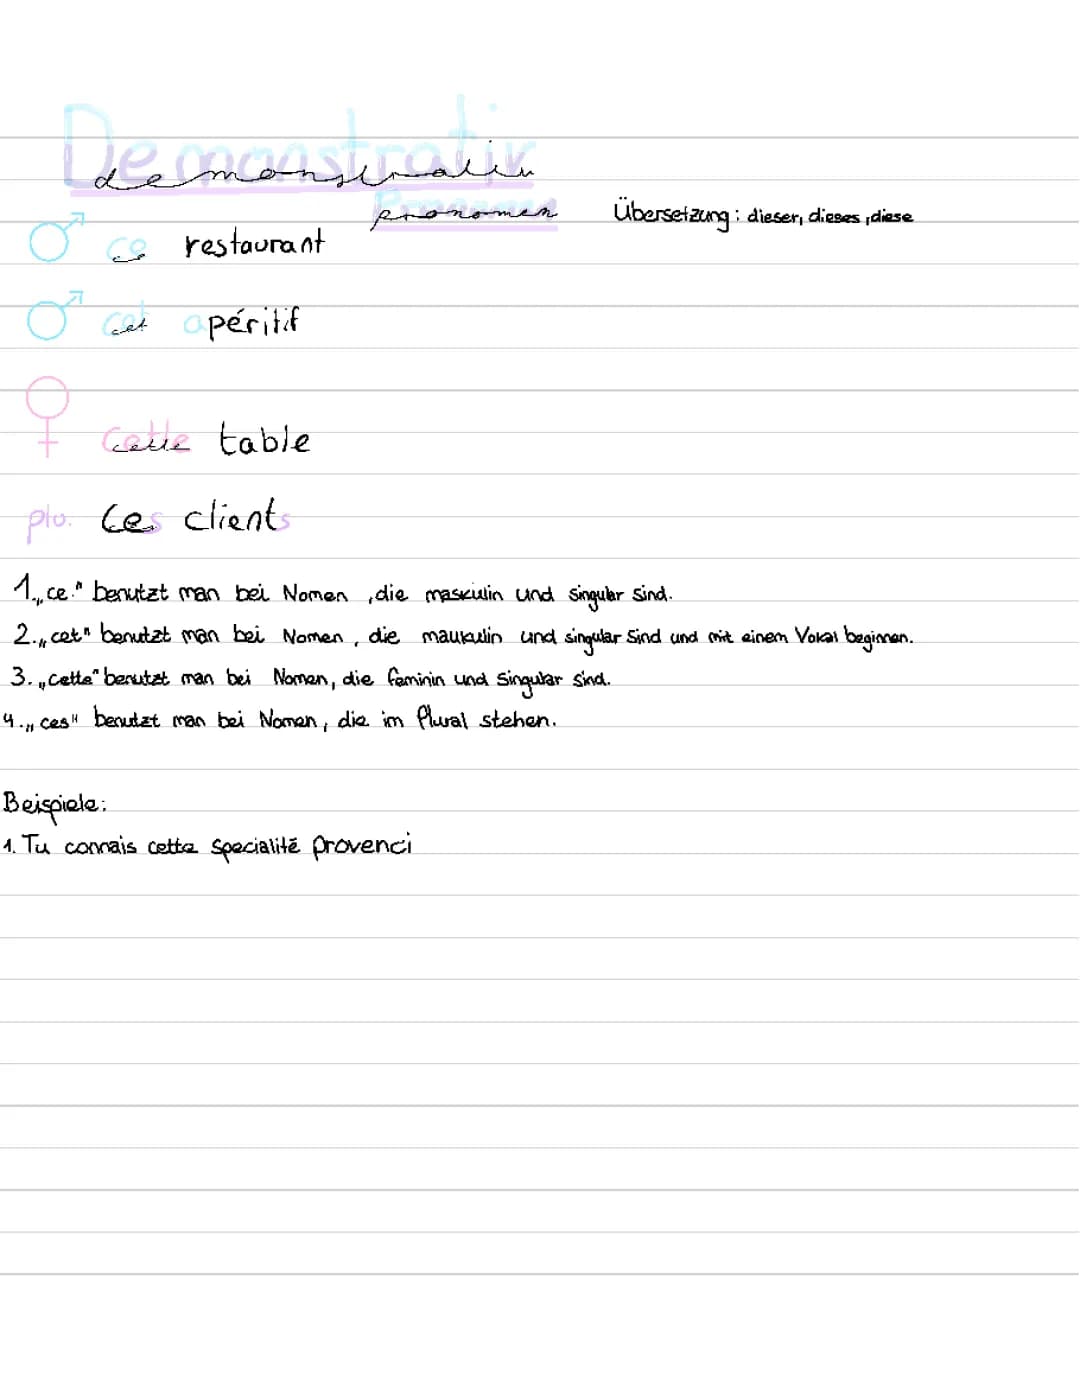 Demonstrativ
demonstrativ
Pronomen
pronomen
Übersetzung: dieser, dieses, diese
ce restaurant
cet apéritif
cette table
plu. Ces clients
1. „ce" benutzt man bei Nomen, die maskulin und singular sind.
2. „cet" benutzt man bei Nomen, die maukulin und singular sind und mit einem Vokal beginnen.
3. „cette" benutzt man bei Nomen, die feminin und Singular sind.
4. „ces" benutzt man bei Nomen, die im Plural stehen.
Beispiele:
1. Tu connais cette specialité provenci